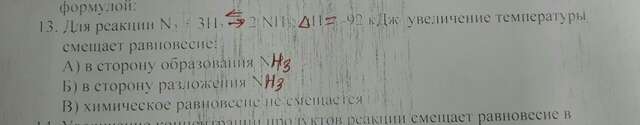 формулой:
13. Для реакции N₂ + 3H₂ ⇄ 2 NH₃; ΔH = -92 кДж увеличение температуры
смещает равновесие:
А) в сторону образования NH3
Б) в сторону разложения NH3
В) химическое равновесие не смещается
14. Увеличение концентрации продуктов реакции смещает равновесие в